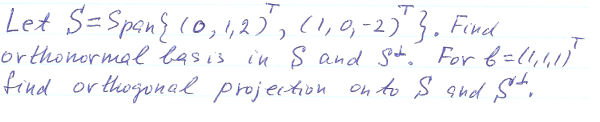 Let S=Span{(0,1,2)ᵀ, (1,0,-2)ᵀ}. Find
orthonormal basis in S and S⊥. For b=(1,1,1)ᵀ
find orthogonal projection onto S and S⊥.